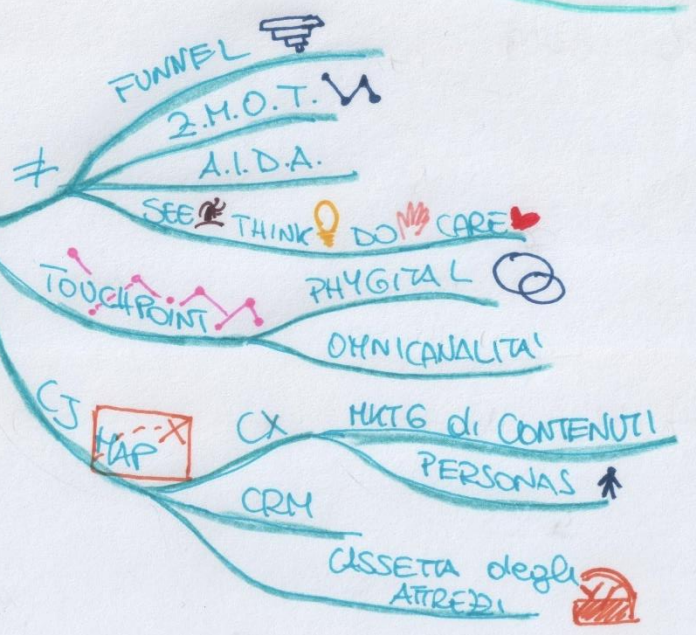 ≠
FUNNEL
Z.M.O.T.
A.I.D.A.
SEE THINK DO CARE
TOUCHPOINT
PHYGITAL
OMNICANALITA'
CJ MAP
CX
MKTG di CONTENUTI
PERSONAS
CRM
CASSETTA degli
ATTREZZI